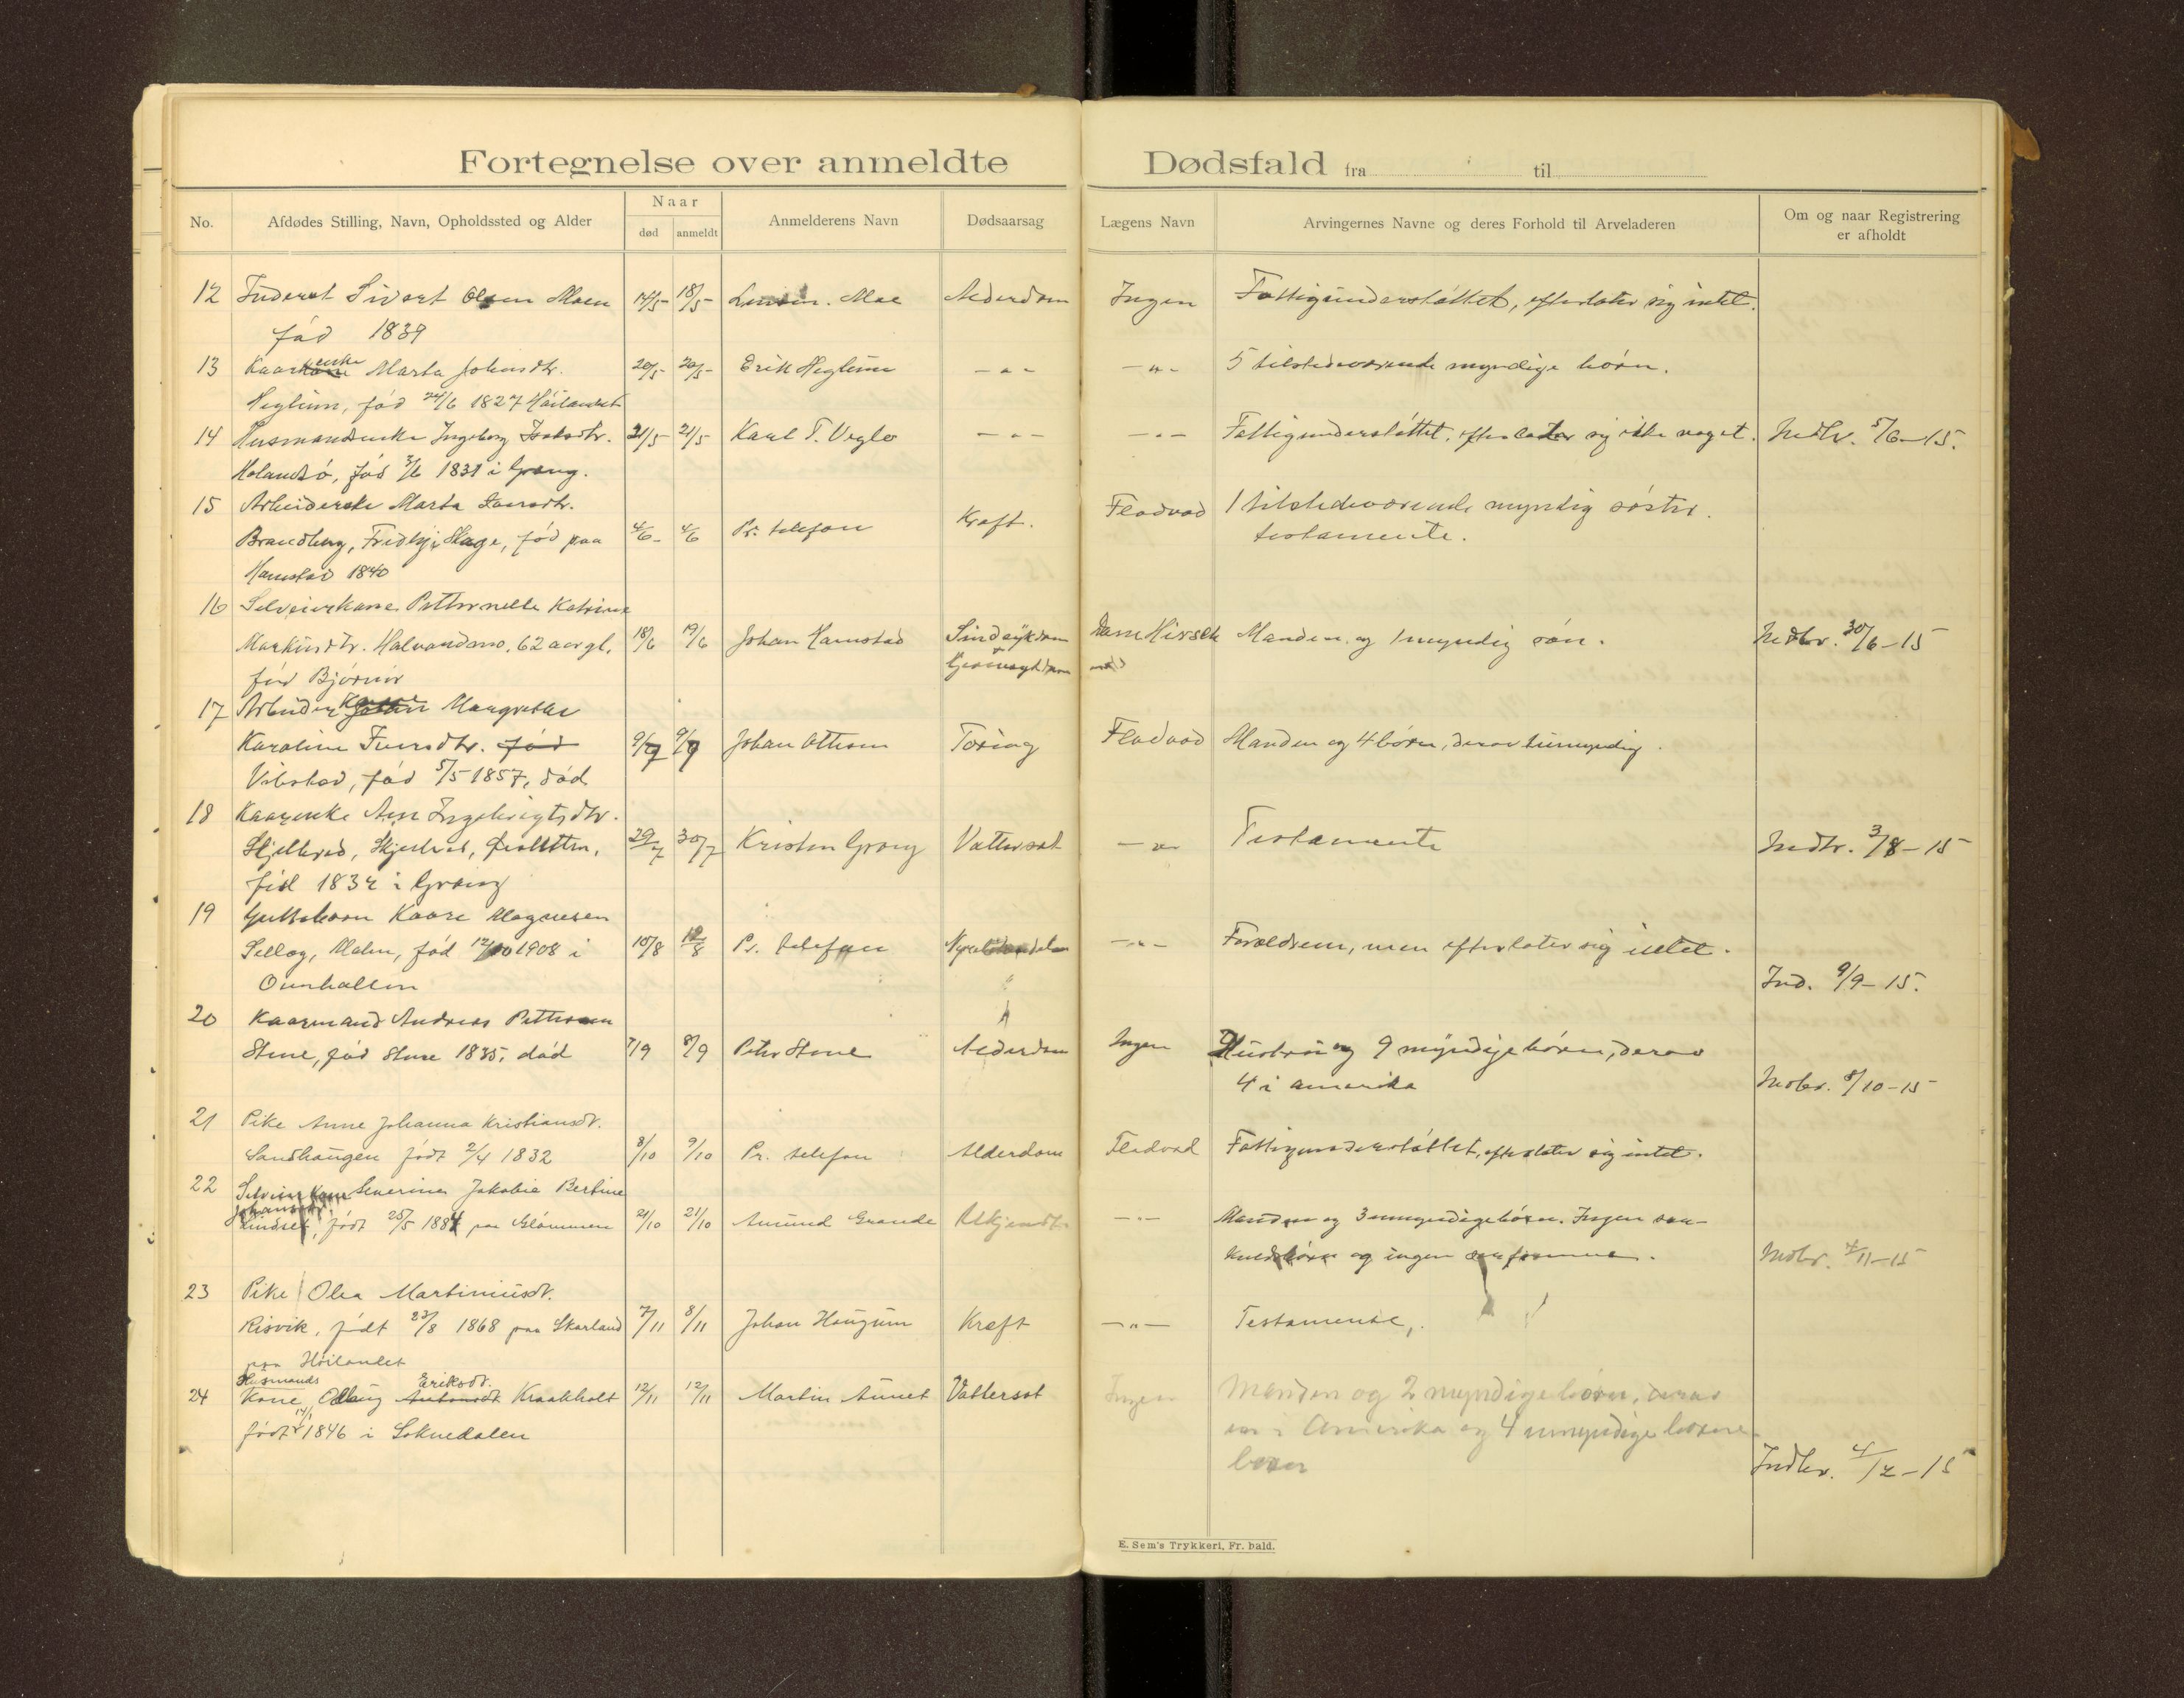 Fortegnelse over anmeldte Dødsfald fra til
No. Afdødes Stilling, Navn, Opholdssted og Alder Naar død anmeldt Anmelderens Navn Dødsaarsag Lægens Navn Arvingernes Navne og deres Forhold til Arveladeren Om og naar Registrering er afholdt
12 Inderst Sivert Olsen Moen 14/5- 18/5- Moe Alderdom Ingen Fattigunderstøttet, efterlater sig intet.
fød 1839
13 Kaarenke Marta Johnsdtr. 20/5- 20/5- Erik Heglum - " - - " - 5 tilstedeværende myndige børn.
Heglum, fød 24/6 1827 Høilandet
14 Husmandsenke Ingeborg Isaksdtr. 21/5- 21/5- Karl T. Veglo - " - - " - Fattigunderstøttet, efterlater sig ikke noget. Indbr. 5/6-15.
Holandsø, fød 3/6 1831 i Grong.
15 Arbeiderske Marta Larsdtr. Flodvad 1 tilstedeværende myndig søster.
Brandberg, Hage, fød paa 4/6- 4/6 Pr. telefon Kræft. testamente.
Hamstad 1840
16 Selveierkone Petternelle Katrine
Markusdtr. Halvandmo, 62 aar gl. 18/6 19/6 Johan Hamstad Sindsykdom Hirsch Manden og 1 myndig søn. Indbr. 30/6-15
fød Bjørnør
17 Arbeider Kone Margrethe
Karoline Iversdtr. fød 9/7 9/7 Johan Ottesen Tæring Flodvad Manden og 4 børn, derav
Vibstad, fød 5/5 1857, død
18 Kaarenke Ane Ingebrigtsdtr.
Skjelbred, fød 29/7 30/7 Kristen Grong Vattersot - " - Testamente Indbr. 3/8-15
fød 1832 i Grong
19 Guttebarn Kaare Magnesen
Sellæg, Malm, fød 12/10 1908 i 10/8 12/8 Pr. telefon - " - Forældrene, men efterlater sig intet.
Overhallen Ind. 9/9-15.
20 Kaarmand Andreas Pettersen
Stene, fød Stene 1835, død 7/9 8/9 Peter Stene Alderdom Ingen Hustru og 9 myndige børn, derav
4 i amerika Indbr. 8/10-15
21 Pike Anne Johanna Kristiansdt.
Sandhaugen født 2/4 1832 8/10 9/10 Pr. telefon Alderdom Flodvad Fattigunderstøttet, efterlater sig intet.
22 Selveier kone Severine Jakobie Bertine
Johansdt.
Lindset, født 25/5 1884 paa Glømmen 21/10 21/10 Amund Grande Ukjendt - " - Manden og 3 umyndige børn. Ingen sær-
kuldsbørn og ingen Indbr. 4/11-15
23 Pike Olea Martiniusdt.
Risvik, født 23/8 1868 paa Skarland 7/11 8/11 Johan Haugum Kræft - " - Testamente.
paa Høilandet
Husmands Eriksdt.
24 Kone Odlaug Antonsdt Kraakholt 12/11 12/11 Martin Aunet Vattersot Ingen Manden og 2 myndige børn, derav
født 14/1 1846 i Soknedalen en i Amerika og 4 umyndige
børn Indbr. 4/12-15
E. Sem's Trykkeri, Fr. hald.